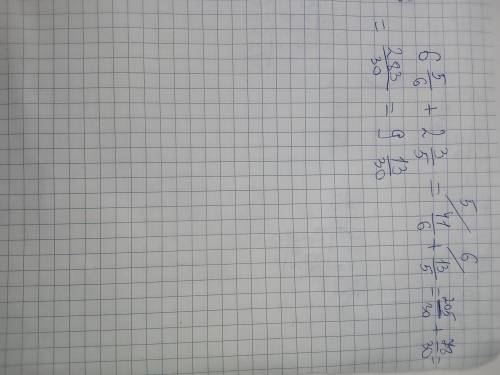 6 5/6 + 2 3/5 = 5/ 41/6 + 6/ 13/5 = 205/30 + 78/30 =
= 283/30 = 9 13/30